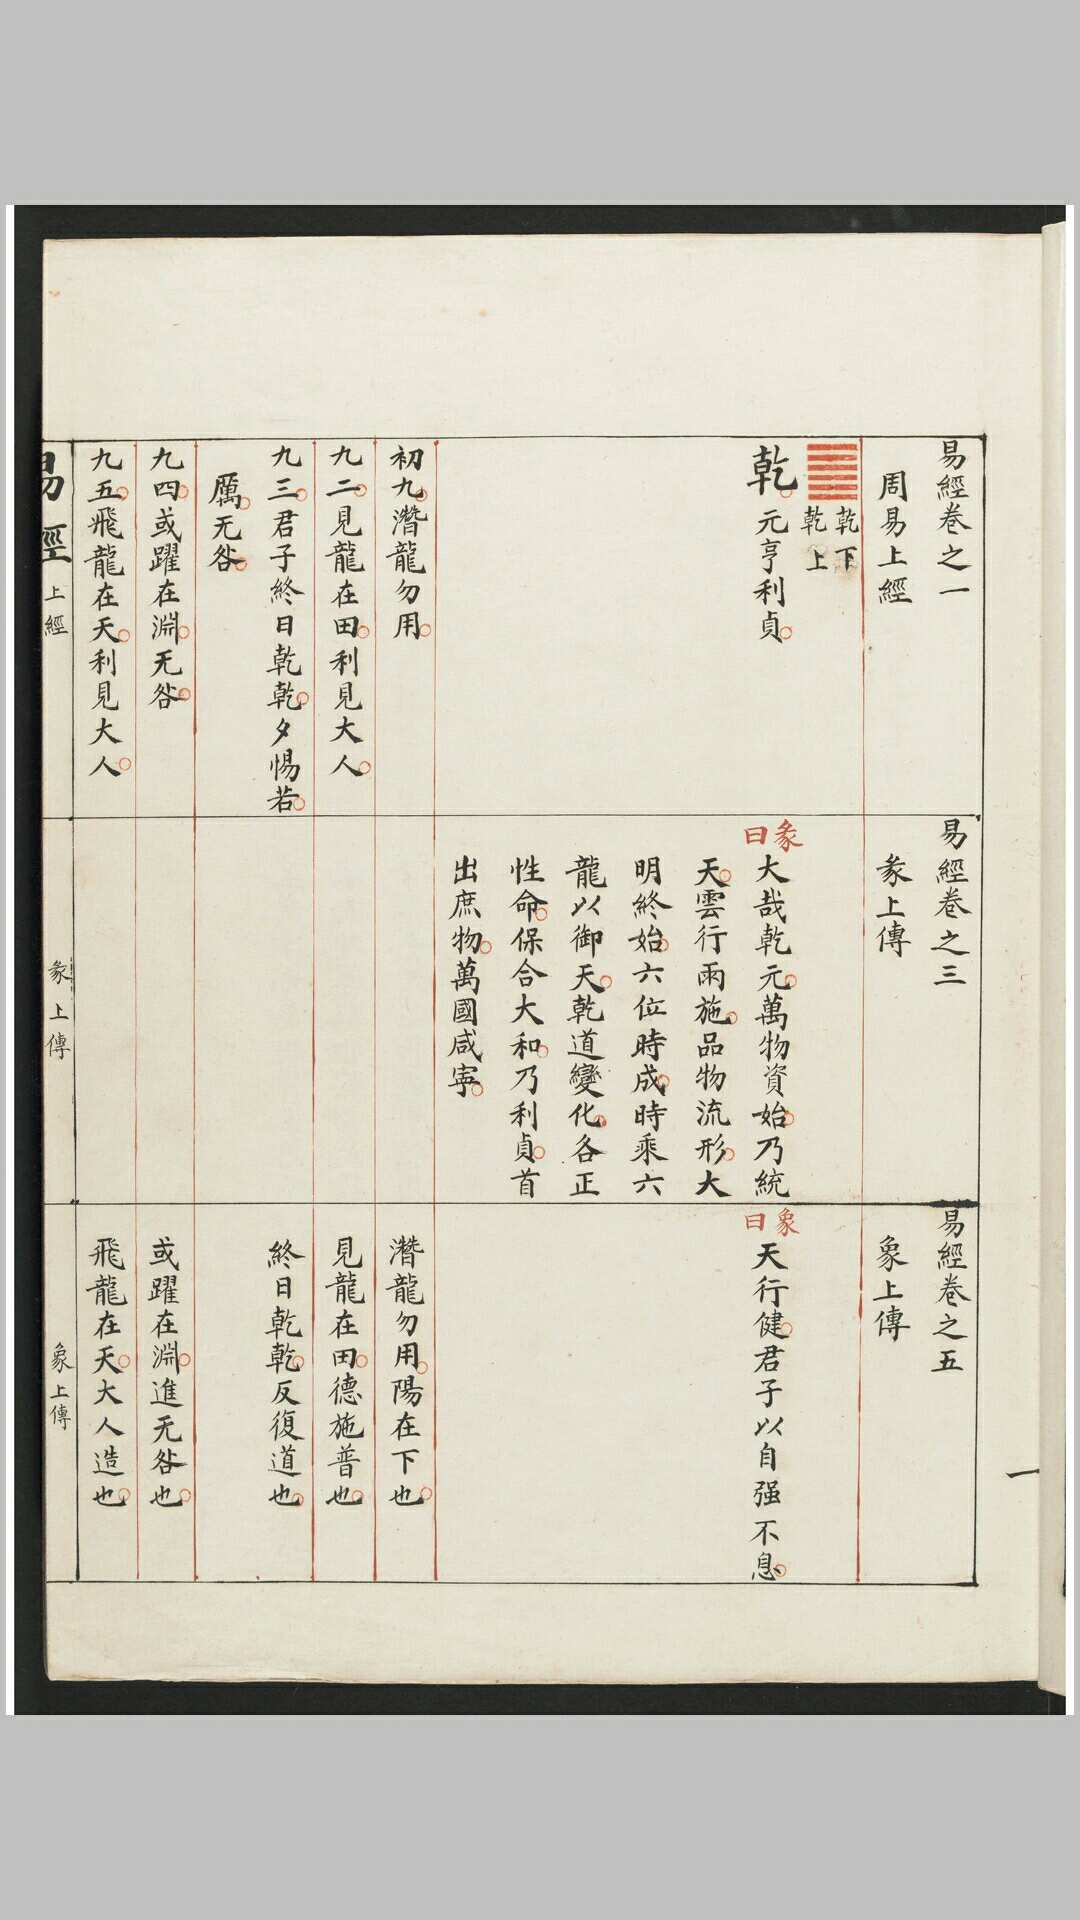 易經卷之一
周易上經
乾下
乾上
乾元亨利貞
初九潛龍勿用
九二見龍在田利見大人
九三君子終日乾乾夕惕若
厲无咎
九四或躍在淵无咎
九五飛龍在天利見大人
易經 上經
易經卷之三
彖上傳
彖曰
大哉乾元萬物資始乃統
天雲行雨施品物流形大
明終始六位時成時乘六
龍以御天乾道變化各正
性命保合大和乃利貞首
出庶物萬國咸寧
彖上傳
易經卷之五
象上傳
象曰
天行健君子以自强不息
潛龍勿用陽在下也
見龍在田德施普也
終日乾乾反復道也
或躍在淵進无咎也
飛龍在天大人造也
象上傳
一